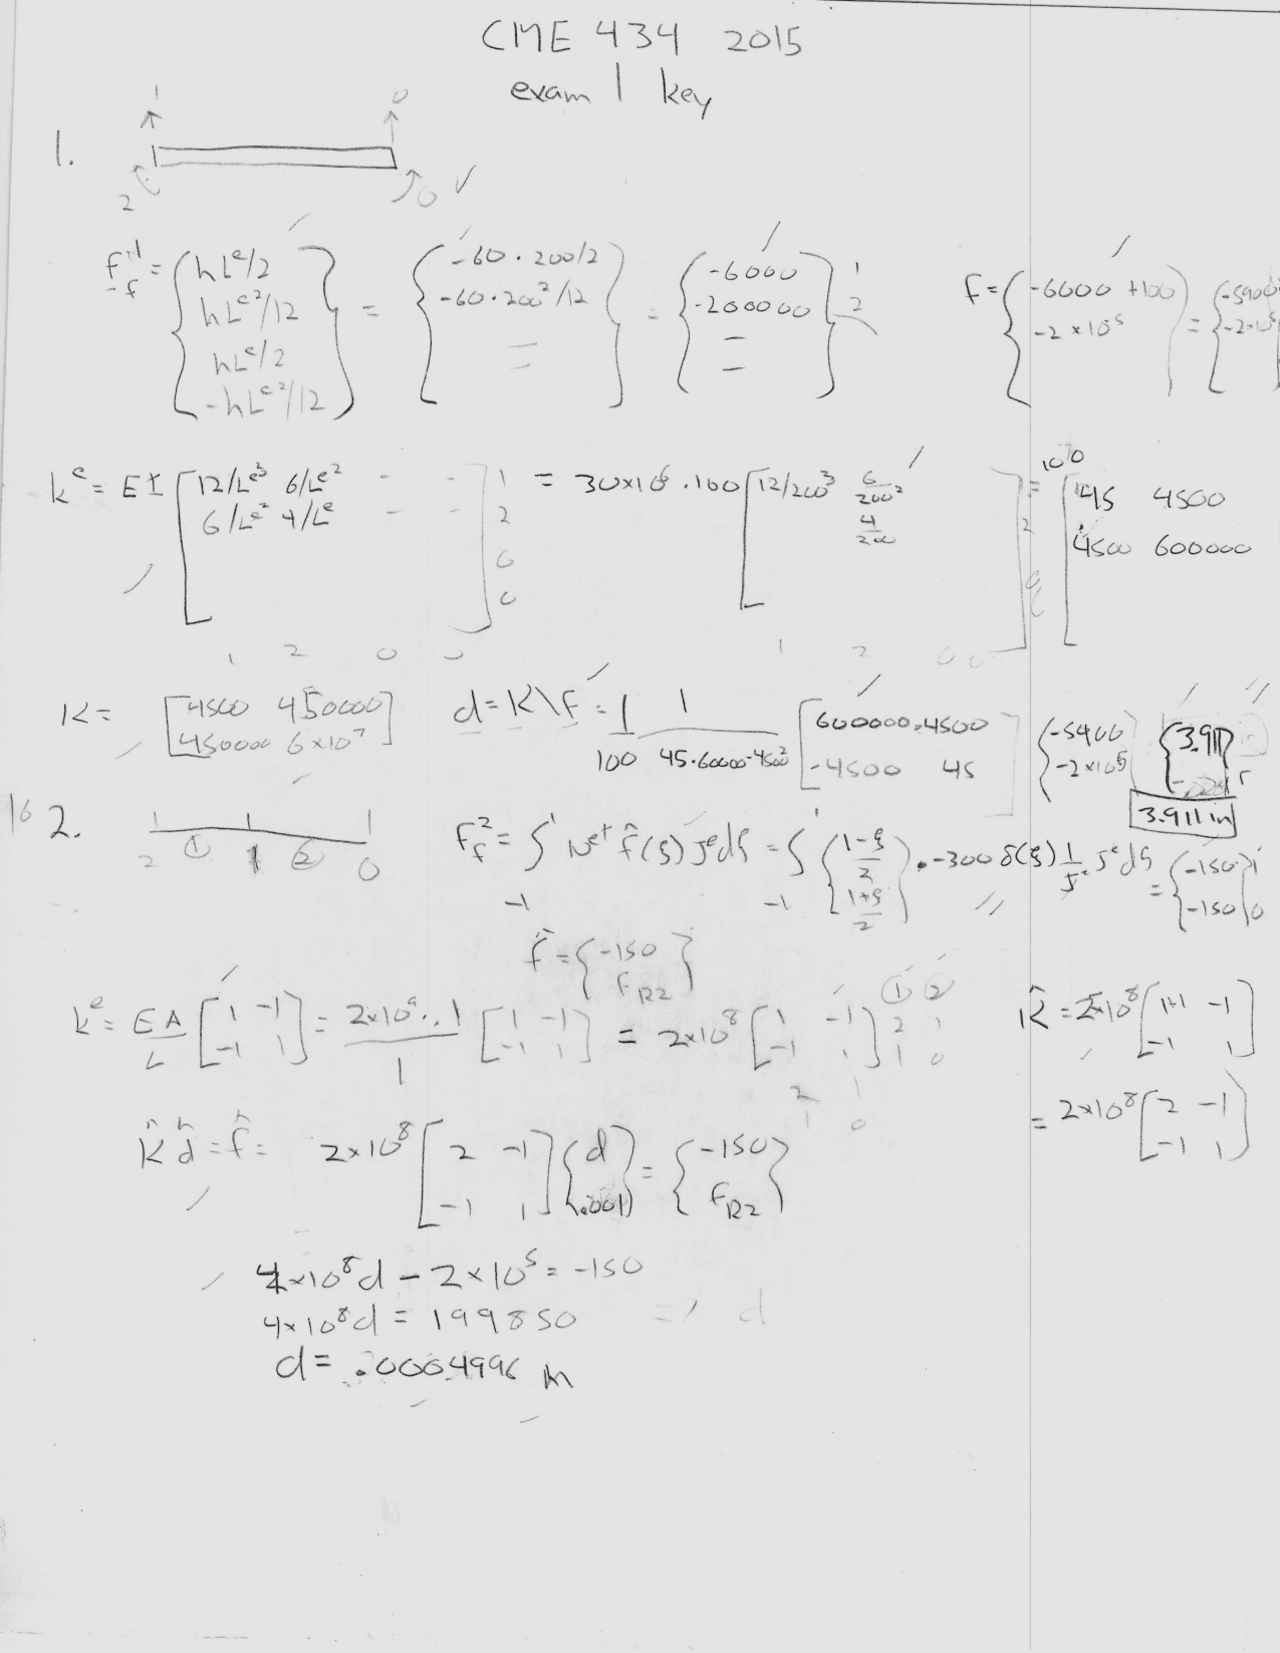 CME 434 2015
exam 1 key
1.
1 0
2 0 ✓
f_f^1 = {hL^e/2
hL^e²/12
hL^e/2
-hL^e²/12} = {-60 · 200/2
-60·200²/12
=} = {-6000
-200000
=} 1
2
f = {-6000 + 100
-2 × 10^5} = {-5900
-2×10^5
k^e = EI [12/L^e³ 6/L^e² - -
6/L^e² 4/L^e - -] 1
2
0
0
1 2 0 0
= 30×10^6 · 100 [12/200³ 6/200²
4/200]
2
1 2 0 0
= 100 [45 4500
4500 600000
K = [4500 450000
450000 6×10^7]
d = K\f = 1/100 1/(45·600000-4500²) [600000 -4500
-4500 45] {-5900
-2×10^5} {3.911
3.911 in
16 2.
1 1 1
2 ① 1 ② 0
f_f^2 = ∫_{-1}^{1} N^{eT} f̂(ξ) J^e dξ = ∫_{-1}^{1} {(1-ξ)/2
(1+ξ)/2} · -300 δ(ξ) 1/J · J^e dξ = {-150
-150} 1
0
f̂ = {-150
f_R2}
k^e = EA/L [1 -1
-1 1] = 2×10^9 · .1/1 [1 -1
-1 1] = 2×10^8 [1 -1
-1 1] ① ②
2 1
1 0
2 1
1 0
K̂ = 2×10^8 [1+1 -1
-1 1]
= 2×10^8 [2 -1
-1 1]
K̂ d̂ = f̂ = 2×10^8 [2 -1
-1 1] {d
.001} = {-150
f_R2}
4×10^8 d - 2×10^5 = -150
4×10^8 d = 199850 => d
d = .0004996 m